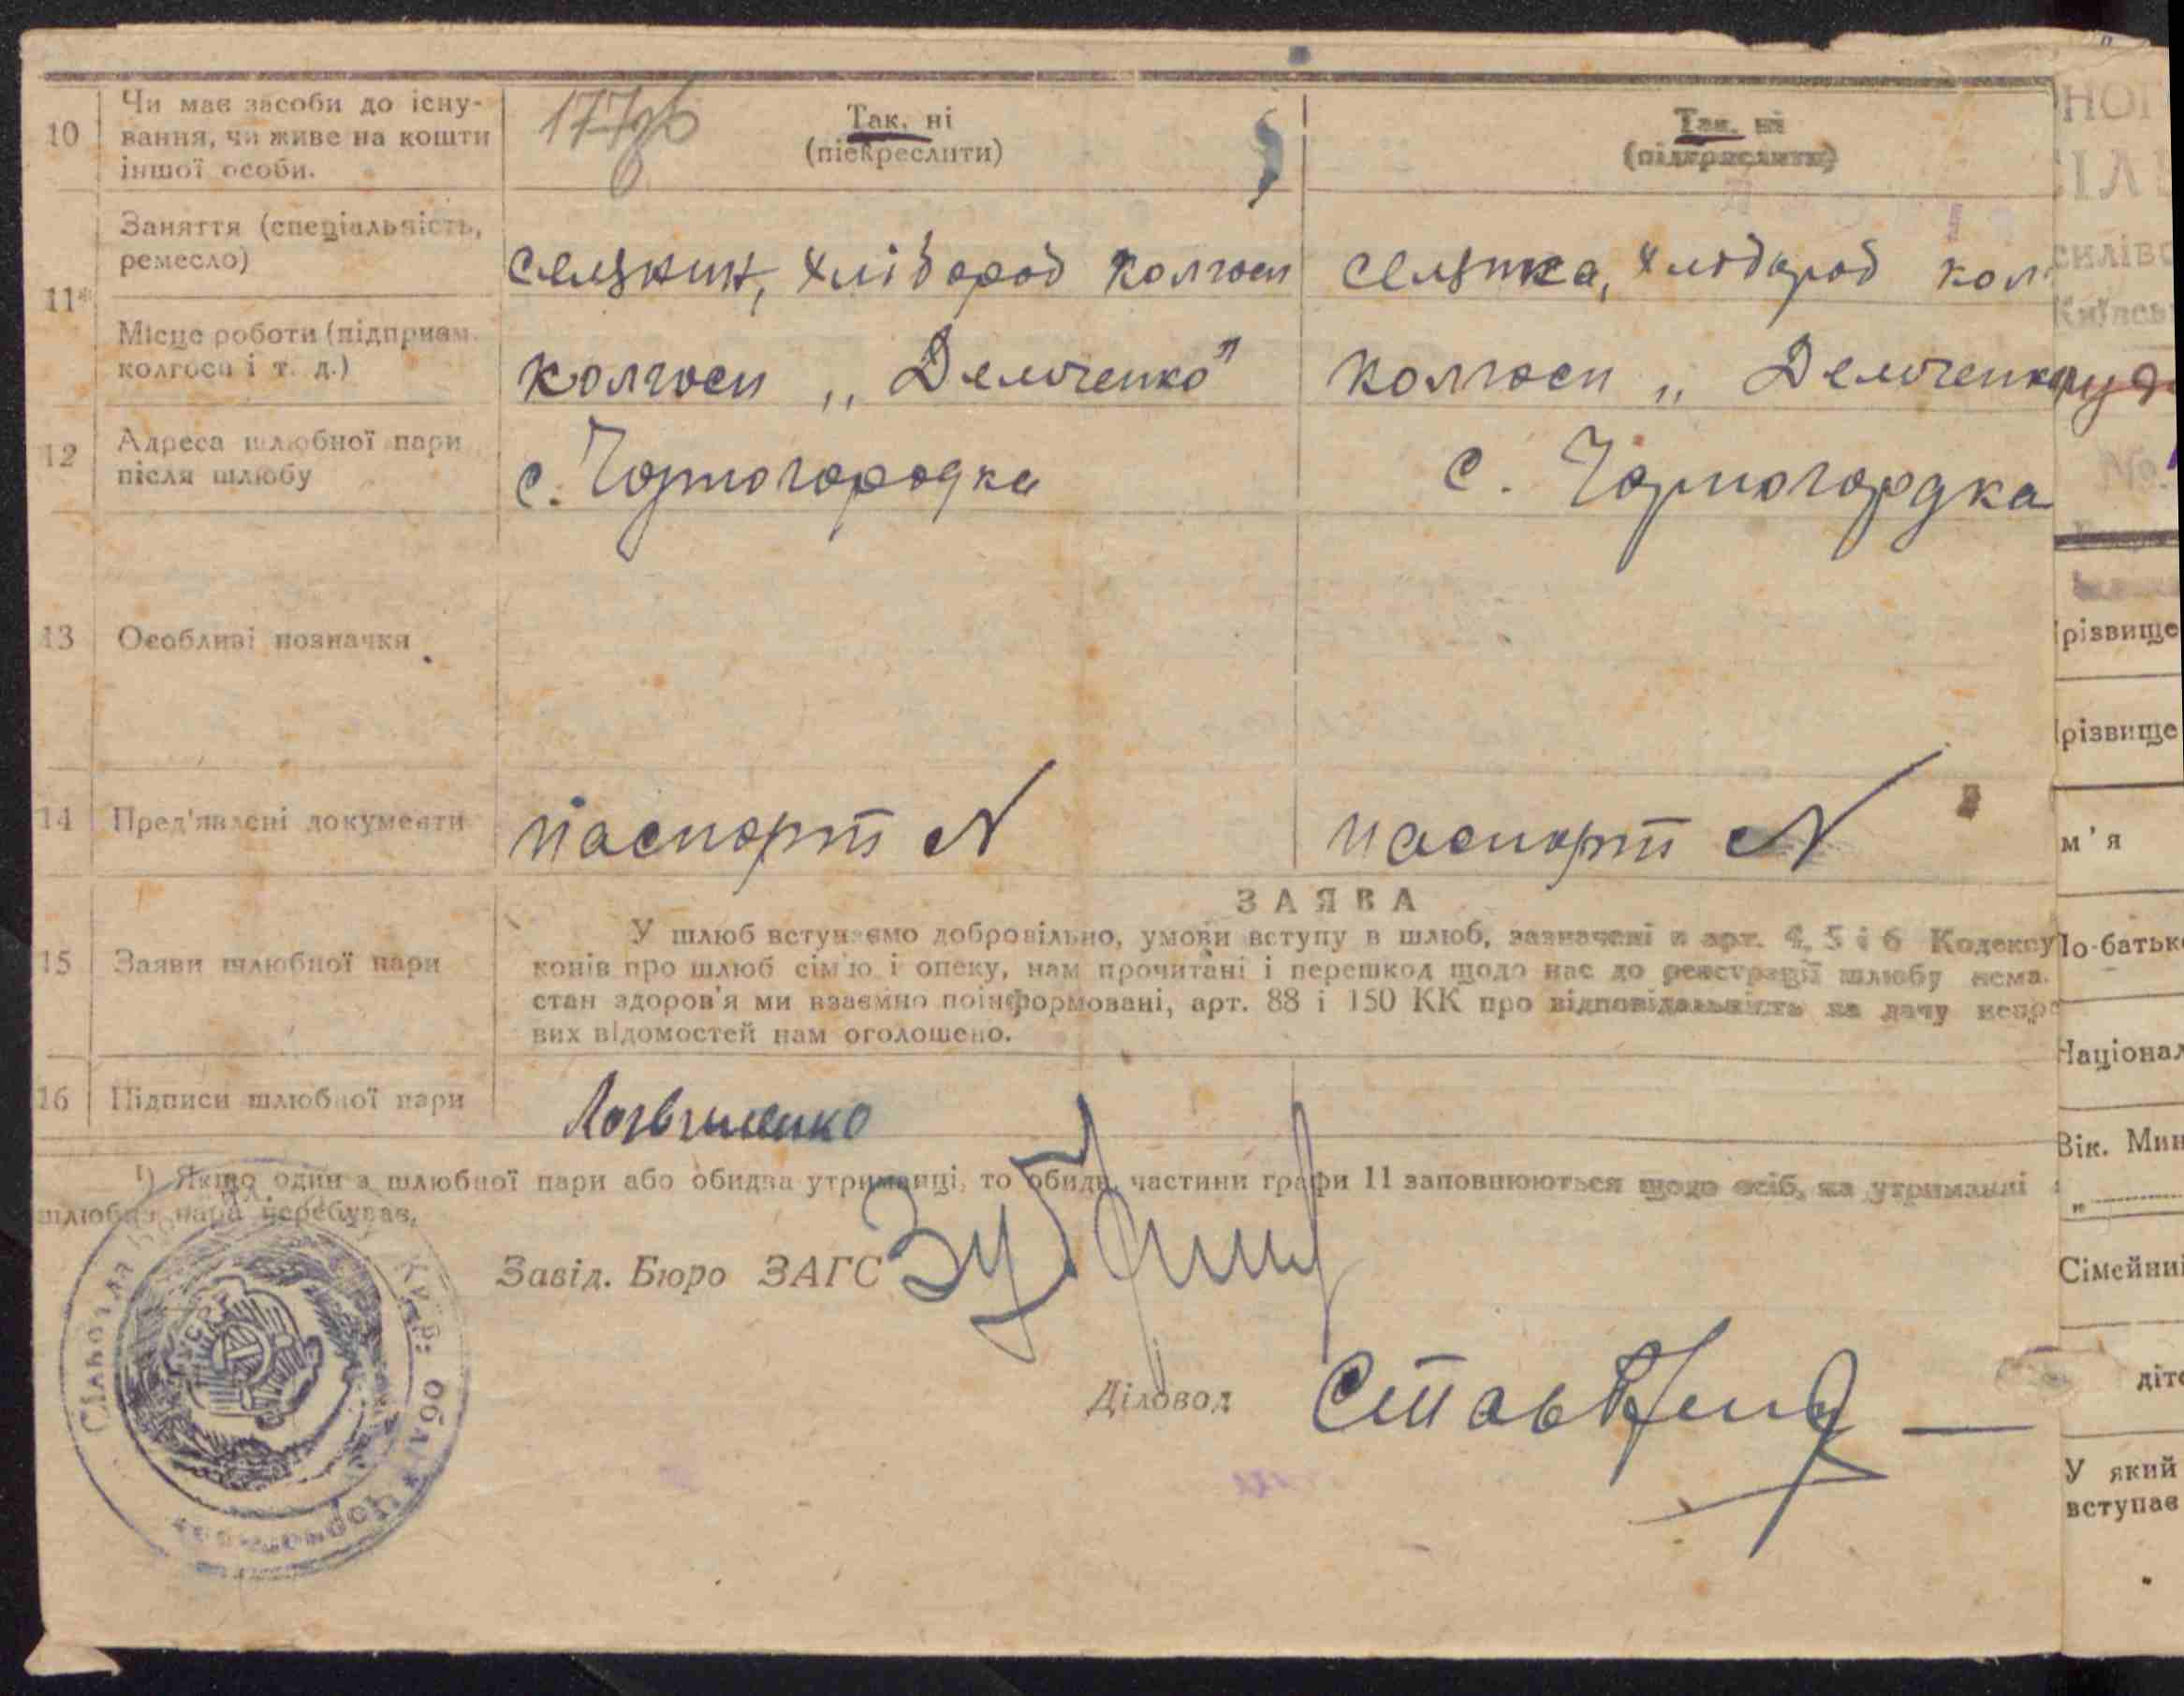 10 Чи має засоби до існу-
вання, чи живе на кошти
іншої особи.
Так, ні
(піскреслити)
Так, ні
(підкреслити)
11 Заняття (спеціальність,
ремесло)
селянин, хлібороб колгосп
селянка, хлібороб кол
Місце роботи (підприєм.
колгосп і т. д.)
колгосп „Демченко"
колгосп „Демченко
12 Адреса шлюбної пари
після шлюбу
с. Чорногородка
с. Чорногордка
13 Особливі позначки
14 Пред'явлені документи
паспорт N
паспорт N
ЗАЯВА
15 Заяви шлюбної пари
У шлюб вступаємо добровільно, умови вступу в шлюб, зазначені в арт. 4, 5 і 6 Кодексу
конів про шлюб сім'ю і опеку, нам прочитані і перешкод щодо нас до реєстрації шлюбу нема.
стан здоров'я ми взаємно поінформовані, арт. 88 і 150 КК про відповідальність за дачу непра
вих відомостей нам оголошено.
16 Підписи шлюбної пари
1) Якщо один з шлюбної пари або обидва утриманці, то обидві частини графи 11 заповнюються щодо осіб, на утриманні
шлюбна пара перебуває.
Завід. Бюро ЗАГС
Діловод
УСРР
Київ. обл.
НОГ
ІЛ
Київсь
No.
різвище
різвище
м'я
По-батьк
Націонал
Вік. Мин
Сімейний
діте
У який
вступає